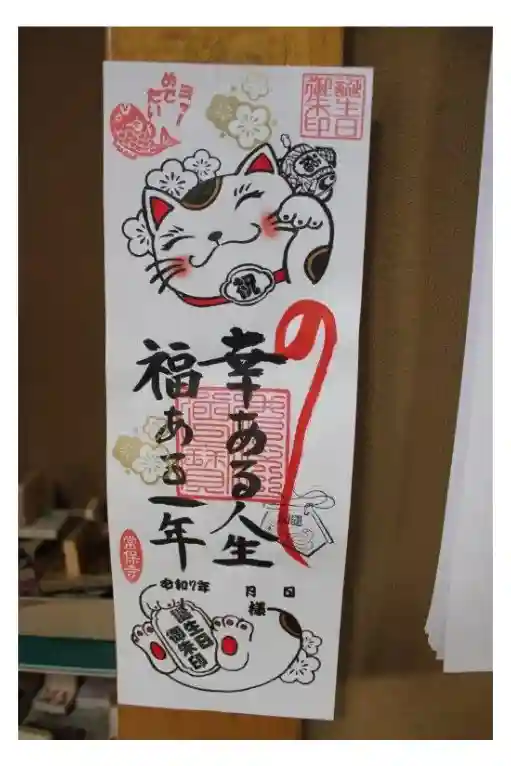 誕生日
御朱印
ヨッ!
めでたい
祝
幸ある人生
福ある一年
常保寺
令和7年 月 日
様
誕生日
御朱印